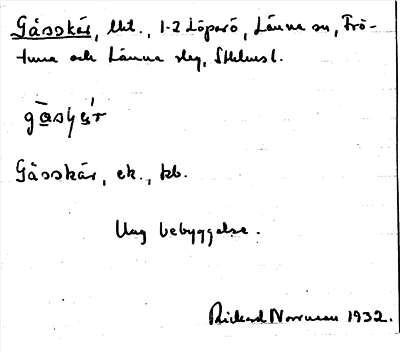 Gåsskär, lht., 1-2 Löparö, Länna sn, Frö-
tuna och Länna slg, Sthlmsl.
Gåsskär, ek., kb.
Ung bebyggelse.
Rickard Norrman 1932.